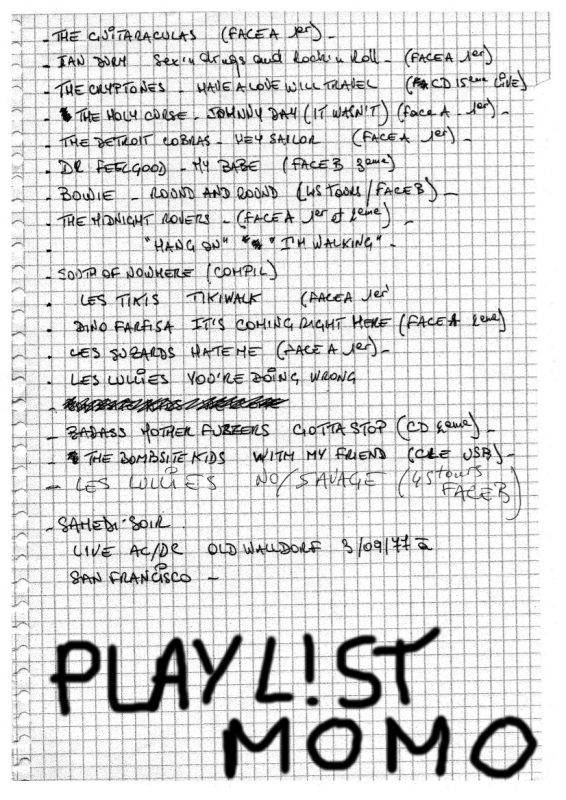 - THE GUITARACULAS (FACE A 1er) -
- IAN DURY Sex in drugs and Rock in Roll - (FACE A 1er)
- THE CRYPTONES - HAVE A LOVE WILL TRAVEL (CD 15eme LIVE)
- THE HOLY CURSE - JOHNNY DAY (IT WASN'T) (face A - 1er) -
- THE DETROIT COBRAS - HEY SAILOR (FACE A 1er) -
- DR FEELGOOD - MY BABE (FACE B 2eme)
- BOWIE - ROUND AND ROUND (45 TOURS / FACE B) -
- THE MIDNIGHT ROVERS - (FACE A 1er et 2eme) -
"HANG ON" "I'M WALKING" -
- SOUTH OF NOWHERE (COMPIL)
- LES TIKIS TIKIWALK (FACE A 1er
- DINO FARFISA IT'S COMING RIGHT HERE (FACE A 2eme)
- LES SUZARDS HATE ME (FACE A 1er) -
- LES LULLIES YOU'RE DOING WRONG
- BADASS MOTHER FUZZERS GOTTA STOP (CD 2eme) -
- THE BOMBSITE KIDS WITH MY FRIEND (CLE USB) -
- LES LULLIES NO/SAVAGE (45 tours FACE B)
- SAMEDI-SOIR
LIVE AC/DC OLD WALLDORF 3/09/77 à
SAN FRANCISCO -
PLAYL!ST
MOMO